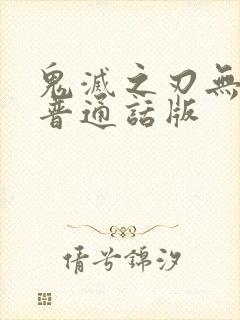 鬼滅之刃無
普通話版
倩兮錦汐